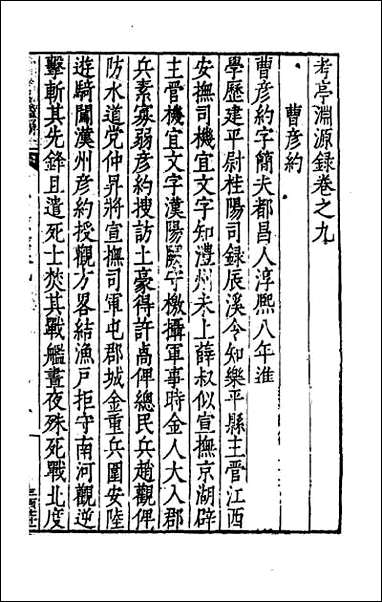 考亭淵源録卷之九
曹彦約
曹彦約字簡夫都昌人淳熙八年進
學歷建平尉桂陽司録辰溪令知樂平縣主管江西
安撫司機宜文字知澧州未上薛叔似宣撫京湖辟
主管機宜文字漢陽闕守檄攝軍事時金人大入郡
兵素寡弱彦約搜訪土豪得許卨俾總民兵趙觀俾
防水道党仲昇將宣撫司軍屯郡城金重兵圍安陸
遊騎闖漢州彦約授觀方畧結漁戶拒守南河觀逆
擊斬其先鋒且遣死士焚其戰艦晝夜殊死戰北度